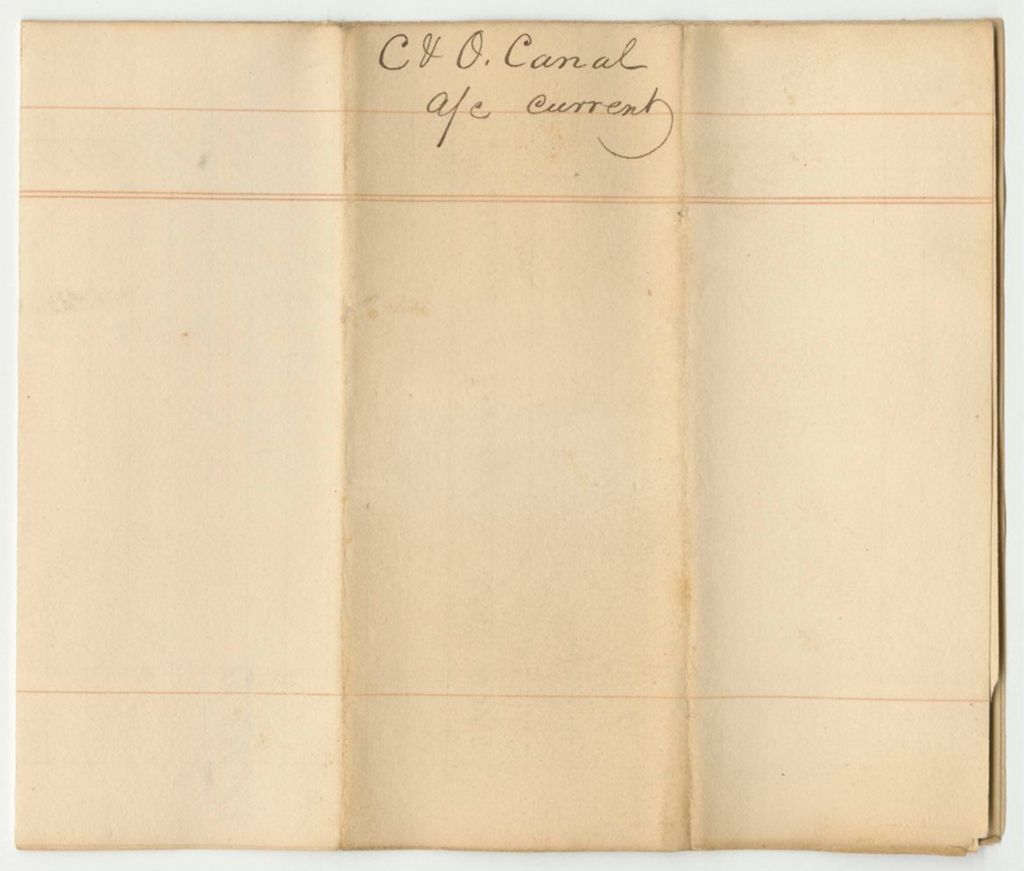 C & O. Canal
a/c current